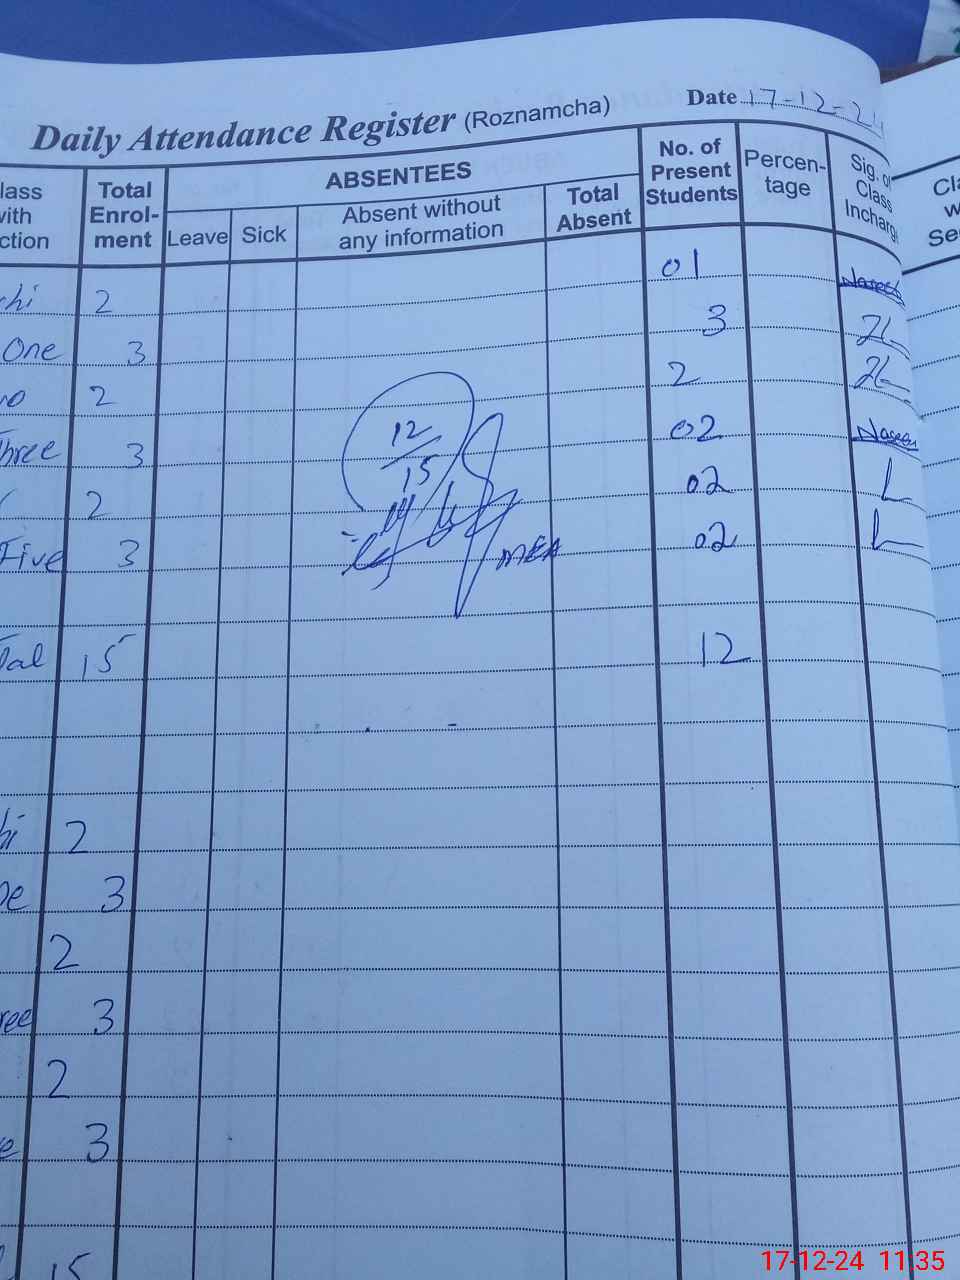 Daily Attendance Register (Roznamcha) Date 17-12-24
lass with ction Total Enrol-ment ABSENTEES No. of Present Students Percen-tage Sig. of Class Incharge
Leave Sick Absent without any information Total Absent
chi 2 01 Naseeb
One 3 3
wo 2 2
Three 3 02
2 02
Five 3 02
12/15
MEA
Total 15 12
hi 2
ne 3
2
ree 3
2
e 3
15
Cla
w
Se
17-12-24 11:35